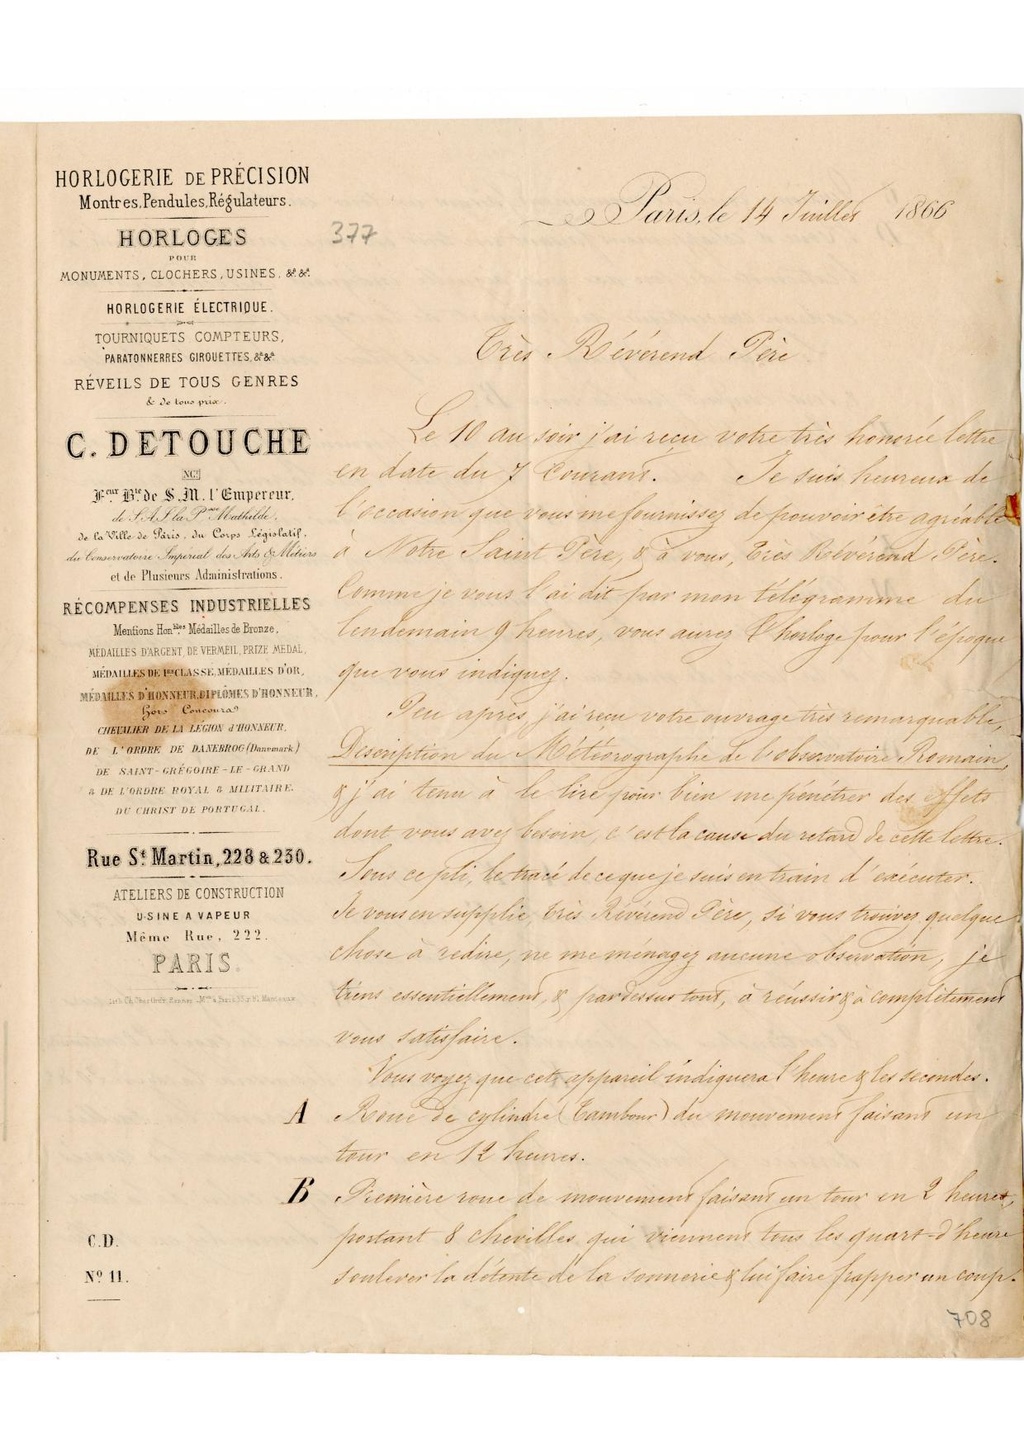 HORLOGERIE DE PRÉCISION
Montres, Pendules, Régulateurs.
HORLOGES
POUR
MONUMENTS, CLOCHERS, USINES. &ª &ª.
HORLOGERIE ÉLECTRIQUE.
TOURNIQUETS COMPTEURS,
PARATONNERRES GIROUETTES, &ª &ª
RÉVEILS DE TOUS GENRES
& de tous prix.
C. DETOUCHE
NGT
Feur Bté de S.M. l'Empereur,
de S.A.I. la Psse Mathilde,
de la Ville de Paris, du Corps Législatif,
du Conservatoire Impérial des Arts & Métiers
et de Plusieurs Administrations.
RÉCOMPENSES INDUSTRIELLES
Mentions Honbles Médailles de Bronze,
MÉDAILLES D'ARGENT, DE VERMEIL, PRIZE MEDAL,
MÉDAILLES DE 1re CLASSE, MÉDAILLES D'OR,
MÉDAILLES D'HONNEUR, DIPLÔMES D'HONNEUR,
Hors Concours
CHEVALIER DE LA LÉGION d'HONNEUR,
DE L'ORDRE DE DANEBROG (Danemark)
DE SAINT-GRÉGOIRE-LE-GRAND
& DE L'ORDRE ROYAL & MILITAIRE
DU CHRIST DE PORTUGAL.
Rue St Martin, 228 & 230.
ATELIERS DE CONSTRUCTION
USINE A VAPEUR
Même Rue, 222.
PARIS.
C.D.
Nº 11.
377
Paris, le 14 Juillet 1866
Très Révérend Père
Le 10 au soir j'ai reçu votre très honorée lettre
en date du 7 Courant. Je suis heureux de
l'occasion que vous me fournissez de pouvoir être agréable
à Notre Saint Père, & à vous, Très Révérend Père.
Comme je vous l'ai dit par mon télégramme du
lendemain 9 heures, vous aurez l'horloge pour l'époque
que vous indiquez.
Peu après, j'ai reçu votre ouvrage très remarquable,
Description du Météorographe de l'observatoire Romain,
& j'ai tenu à le lire pour bien me pénétrer des effets
dont vous avez besoin, c'est la cause du retard de cette lettre.
Sous ce pli, le tracé de ce que je suis en train d'exécuter.
Je vous en supplie, très Révérend Père, si vous trouvez quelque
chose à redire, ne me ménagez aucune observation, je
tiens essentiellement, & par dessus tout, à réussir & à complètement
vous satisfaire.
Vous voyez que cet appareil indiquera l'heure & les secondes.
A Roue de cylindre (Tambour) du mouvement faisant un
tour en 12 heures.
B Première roue de mouvement faisant un tour en 2 heures,
portant 8 chevilles qui viennent tous les quart-d'heure
soulever la détente de la sonnerie & lui faire frapper un coup.
708